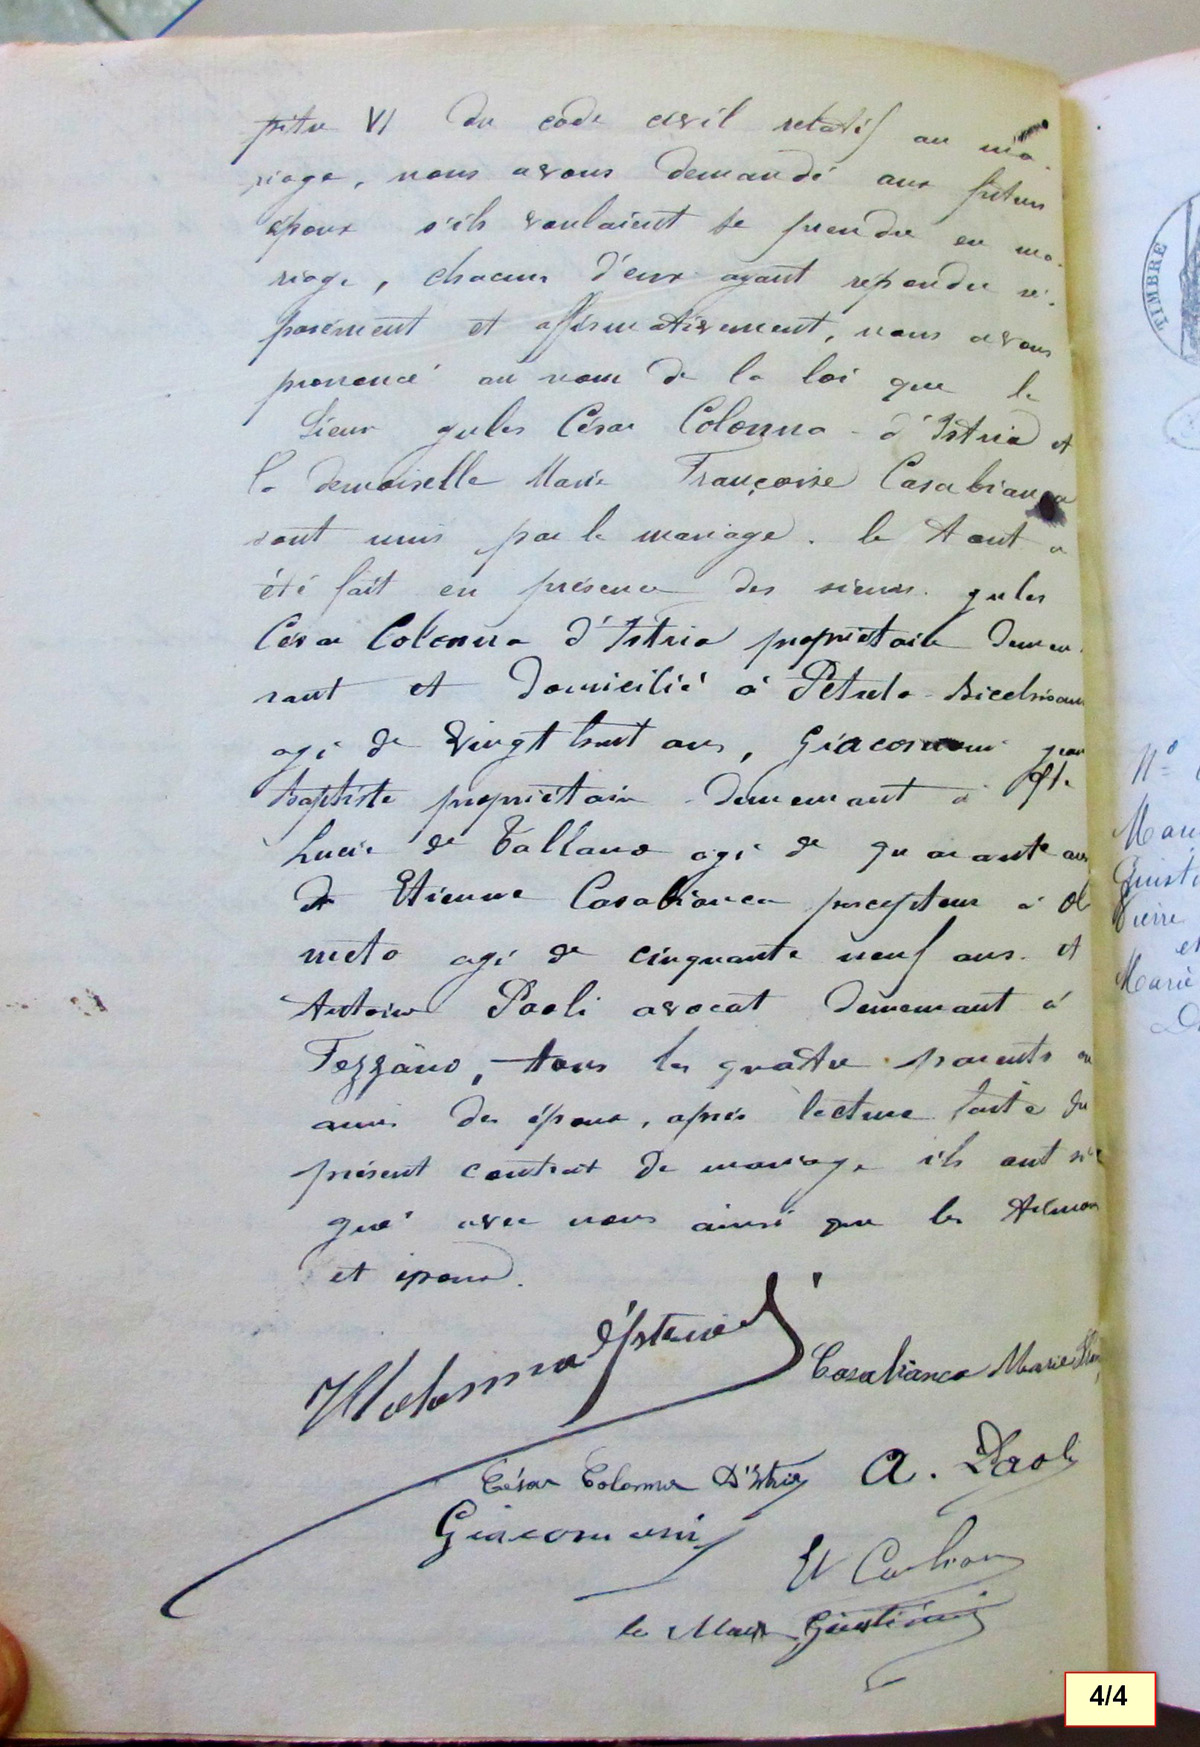 pitre VI du code civil relatif au ma-
riage, nous avons demandé aux futurs
époux s'ils voulaient se prendre en ma-
riage, chacun d'eux ayant répondu sé-
parément et affirmativement, nous avons
prononcé au nom de la loi que le
Sieur Jules César Colonna-d'Istria et
la demoiselle Marie Françoise Casabianca
sont unis par le mariage. le tout a
été fait en présence des sieurs Jules
César Colonna d'Istria propriétaire demeu-
rant et domicilié à Petreto-Bicchisano
agé de vingt huit ans, Giacomoni Jean
Baptiste propriétaire demeurant à Ste
Lucie de Tallano agé de quarante ans
et Etienne Casabianca percepteur à Ol
meto agé de cinquante neuf ans. et
Antoine Paoli avocat demeurant à
Fozzano, tous les quatre parents ou
amis des époux, après lecture faite du
présent contrat de mariage ils ont si
gné avec nous ainsi que les témoins
et époux.
Colonna d'Istria
Casabianca Marie
César Colonna D'Istria
A. Paoli
Giacomoni
Et
le Maire Giustiniani
TIMBRE
N°
Marie
4/4